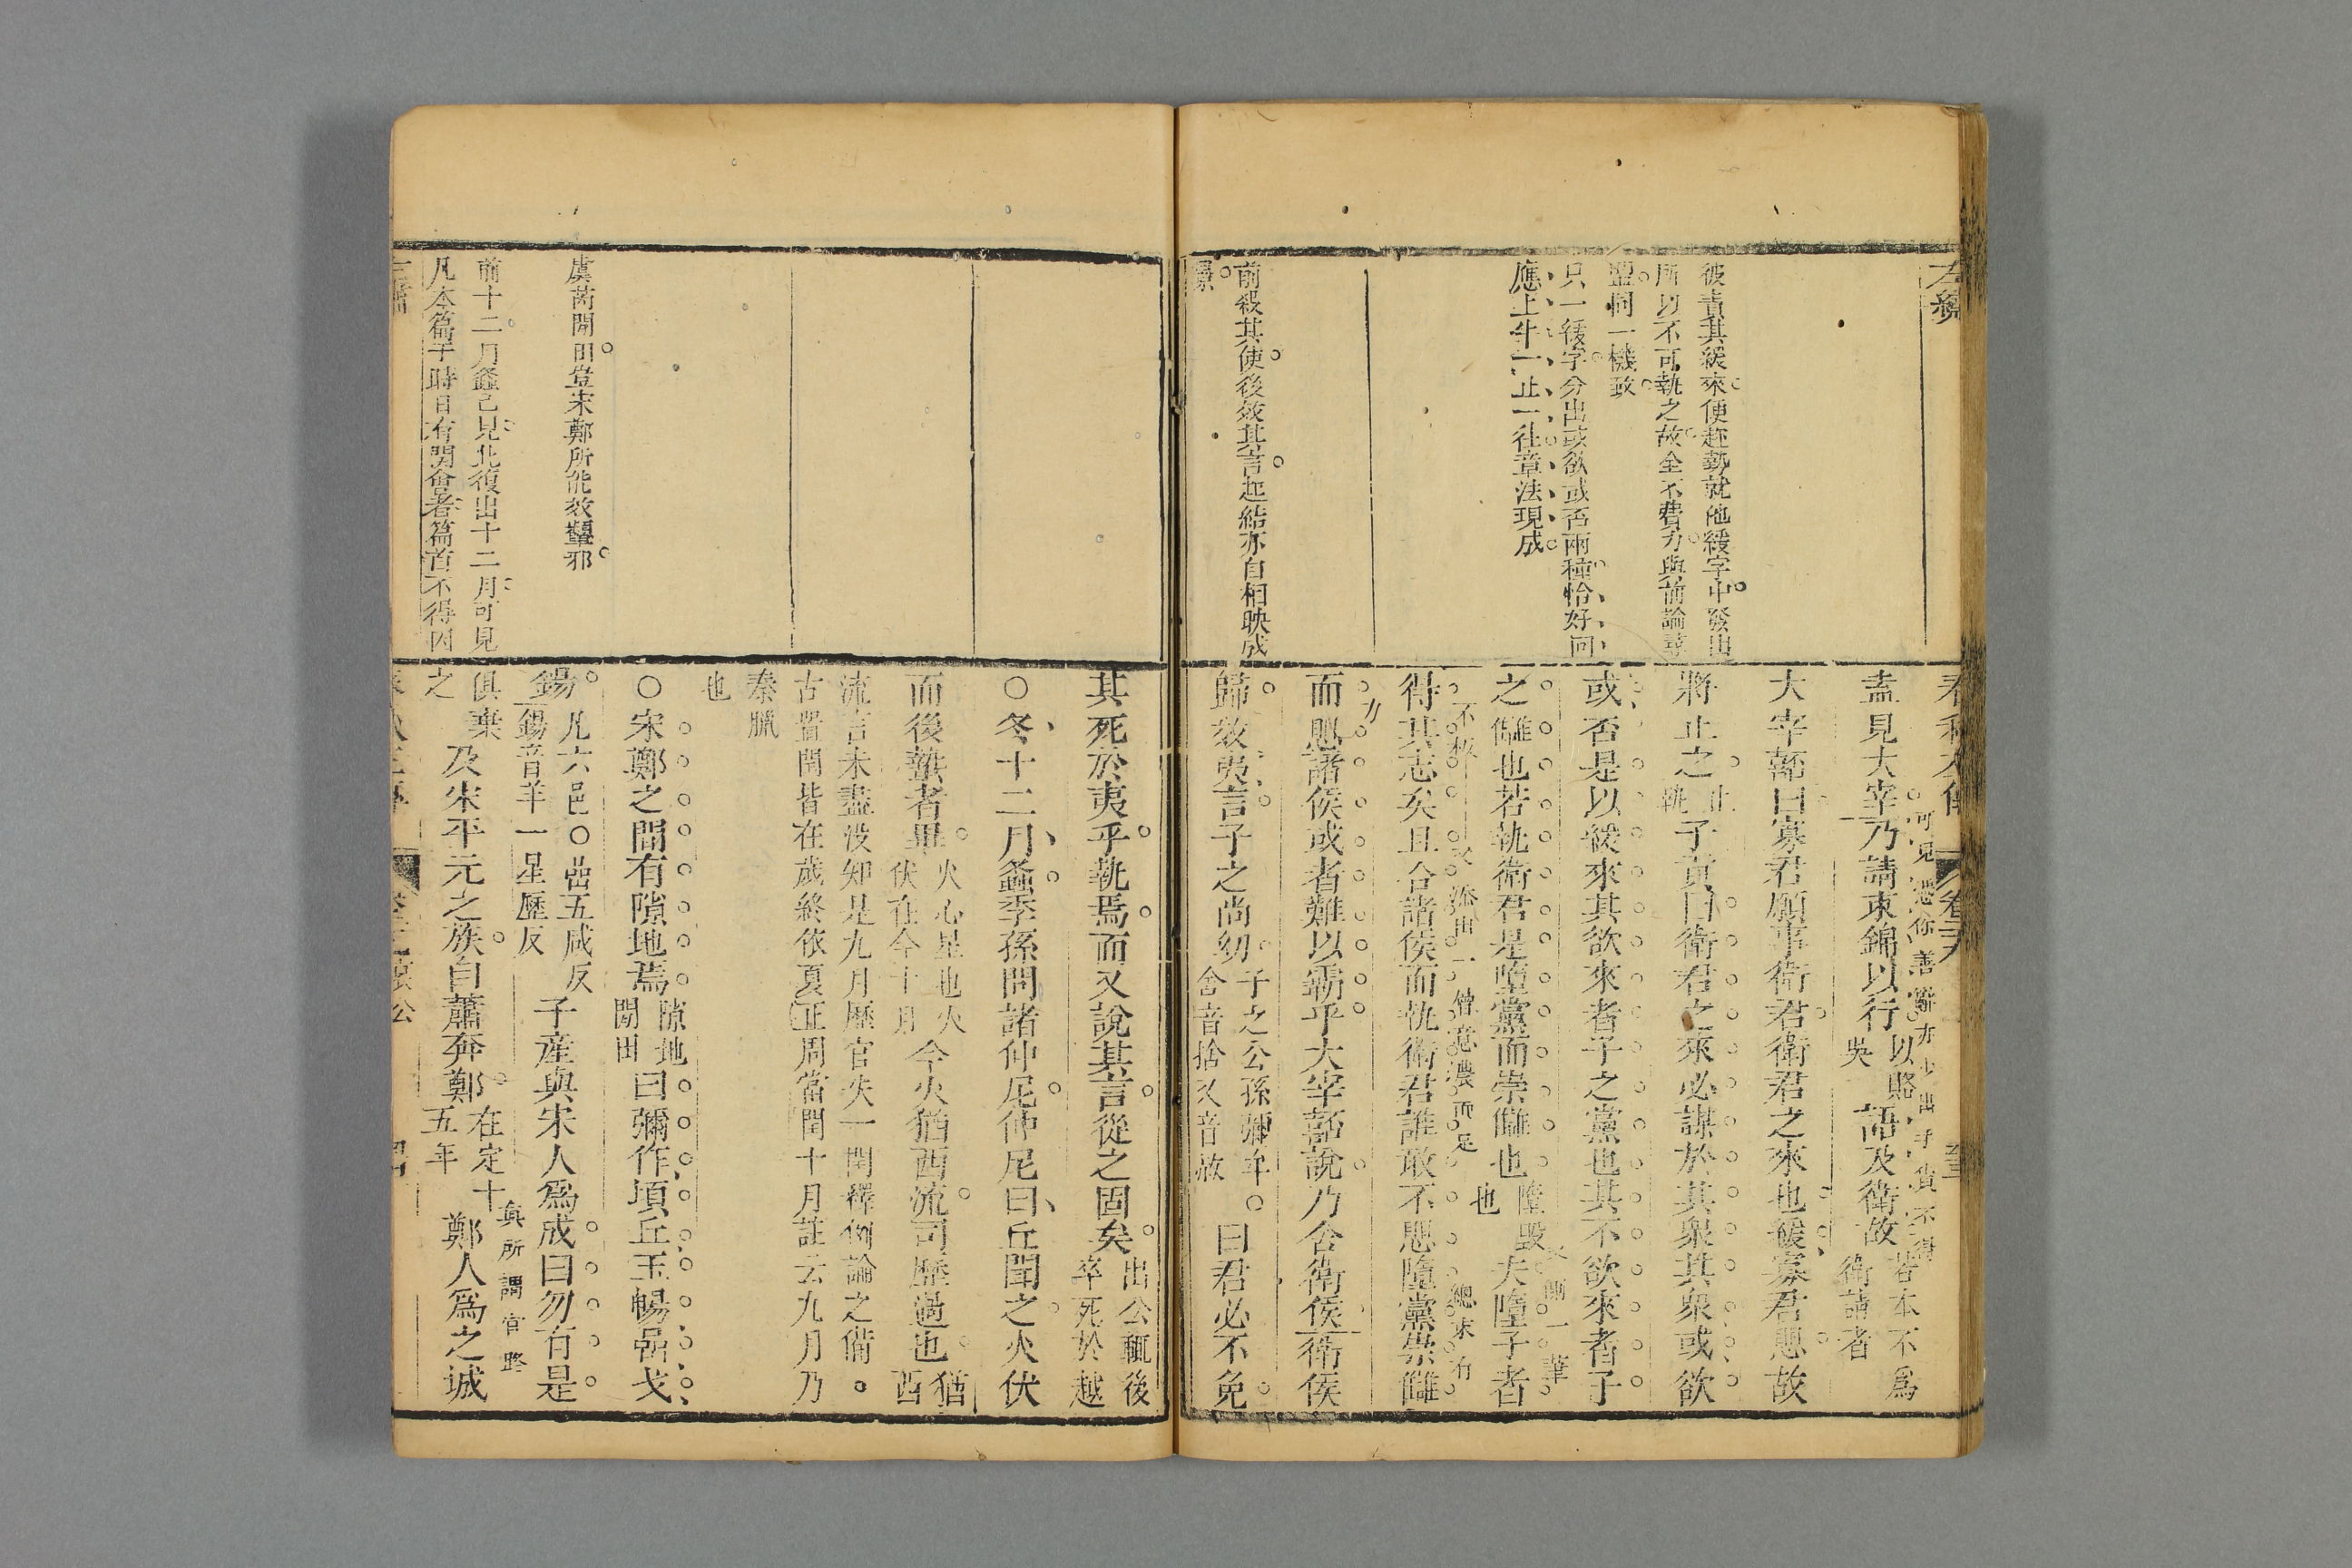 左繡
彼責其緩來便趂勢就他緩字中發出
所以不可執之故全不費力與前論尋
盟同一機致
只一緩字分出或欲或否兩種恰好回
應上半一止一往章法現成
前緩其使後效其言起結亦自相映成
景
春秋左傳 卷二十九
可見憑你善辭亦少出子貢不得
盍見大宰乃請束錦以行以賂吳語及衛故若本不為衛請者
大宰嚭曰寡君願事衛君衛君之來也緩寡君懼故
將止之止執子貢曰衛君之來必謀於其衆其衆或欲
或否是以緩來其欲來者子之黨也其不欲來者子
之讎也若執衛君是墮黨而崇讎也墮毀也夫墮子者
得其志矣且合諸侯而執衛君誰敢不懼墮黨崇讎
而懼諸侯或者難以霸乎大宰嚭說乃舍衛侯衛侯
歸效夷言子之尚幼子之公孫彌牟○舍音捨又音赦曰君必不免
其死於夷乎執焉而又說其言從之固矣出公輒後卒死於越
○冬十二月螽季孫問諸仲尼仲尼曰丘聞之火伏
而後蟄者畢火心星也火伏在今十月今火猶西流司歷過也猶西
流言未盡沒知是九月歷官失一閏釋例論之備○
古置閏皆在歲終依夏正周當閏十月註云九月乃
秦臘
也
○宋鄭之間有隙地焉隙地閒田曰彌作頃丘玉暢嵒戈
鍚凡六邑○嵒五咸反鍚音羊一星歷反子產與宋人為成曰勿有是
俱棄之及宋平元之族自蕭奔鄭在定十五年鄭人為之城
真所謂官路
虞芮閒田豈宋鄭所能效顰邪
前十二月螽已見此復出十二月可見
凡本篇于時日有關會者篇首不得因